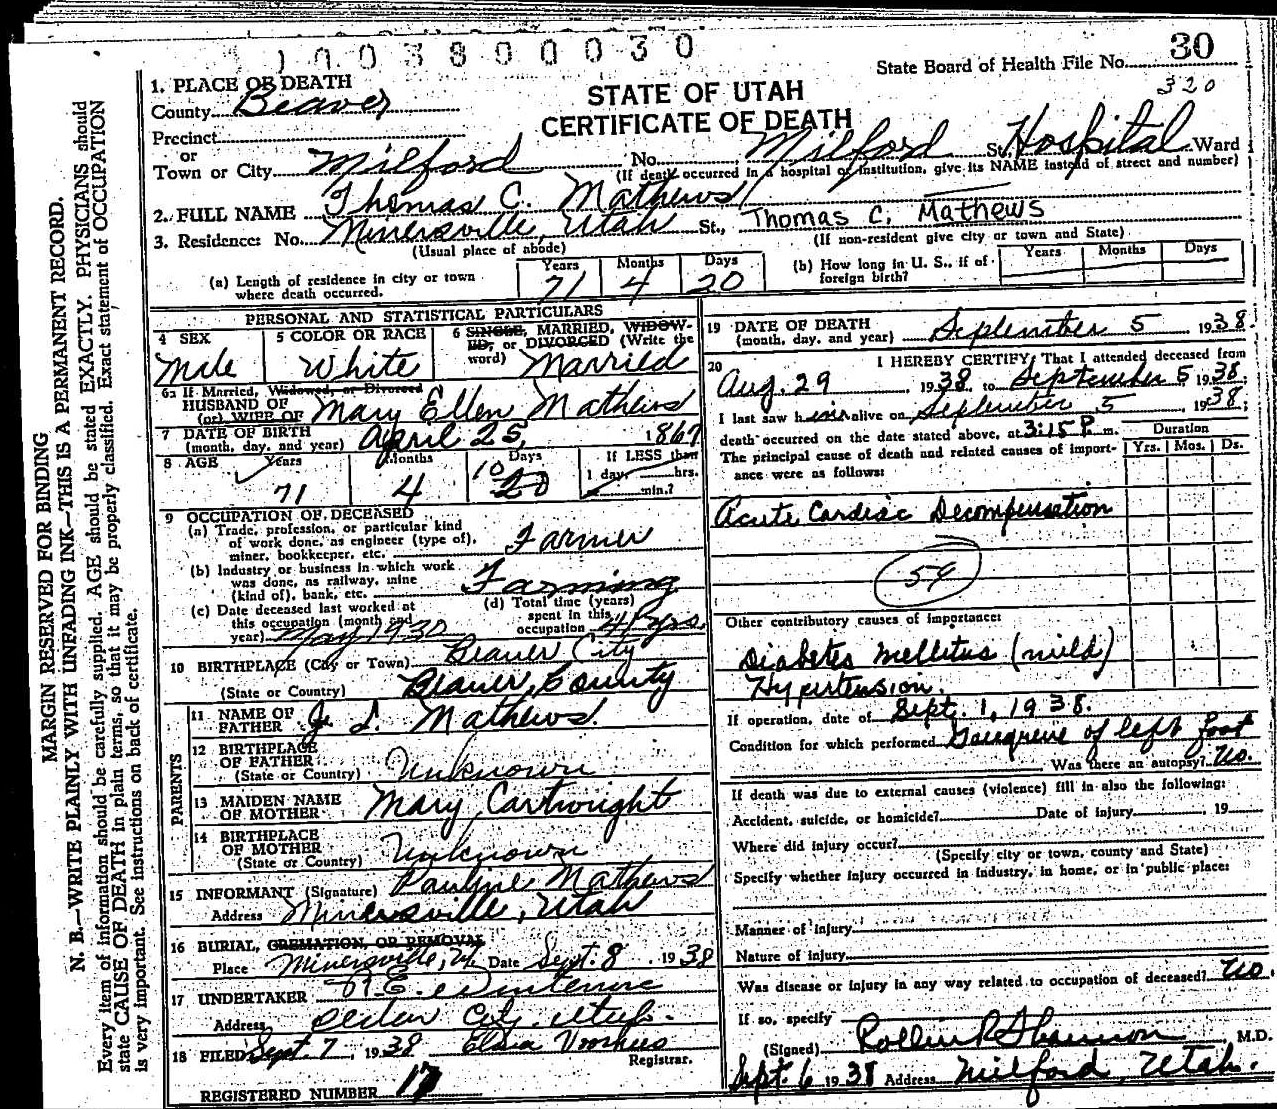 1003800030
State Board of Health File No. 30
320
STATE OF UTAH
CERTIFICATE OF DEATH
1. PLACE OF DEATH
County Beaver
Precinct
or
Town or City Milford No. Milford St. Hospital Ward
(If death occurred in a hospital or institution, give its NAME instead of street and number)
2. FULL NAME Thomas C. Mathews
3. Residence: No. Minersville, Utah St., Thomas C. Mathews
(Usual place of abode) (If non-resident give city or town and State)
(a) Length of residence in city or town where death occurred. Years 71 Months 4 Days 20
(b) How long in U. S., if of foreign birth? Years Months Days
PERSONAL AND STATISTICAL PARTICULARS
4 SEX Male
5 COLOR OR RACE White
6 SINGLE, MARRIED, WIDOWED, or DIVORCED (Write the word) Married
6a If Married, Widowed, or Divorced
HUSBAND OF
(or) WIFE OF Mary Ellen Mathews
7 DATE OF BIRTH
(month, day, and year) April 25, 1867
8 AGE Years 71 Months 4 Days 10 20 If LESS than 1 day, hrs. min.?
9 OCCUPATION OF DECEASED
(a) Trade, profession, or particular kind
of work done, as engineer (type of),
miner, bookkeeper, etc. Farmer
(b) Industry or business in which work
was done, as railway, mine
(kind of), bank, etc. Farming
(c) Date deceased last worked at
this occupation (month and
year) May 1930
(d) Total time (years)
spent in this
occupation 41 yrs.
10 BIRTHPLACE (City or Town) Beaver City
(State or Country) Beaver, County
PARENTS
11 NAME OF
FATHER J. Mathews.
12 BIRTHPLACE
OF FATHER
(State or Country) Unknown
13 MAIDEN NAME
OF MOTHER Mary Cartwright
14 BIRTHPLACE
OF MOTHER
(State or Country) Unknown
15 INFORMANT (Signature) Pauline Mathews
Address Minersville, Utah
16 BURIAL, CREMATION, OR REMOVAL
Place Minersville, Ut. Date Sept. 8 1938
17 UNDERTAKER
Address Cedar City, Utah.
18 FILED Sept. 7, 1938 Elma Voorhees
Registrar.
REGISTERED NUMBER 17
19 DATE OF DEATH
(month, day, and year) September 5 1938.
20 I HEREBY CERTIFY, That I attended deceased from
Aug. 29, 1938 to September 5 1938;
I last saw him alive on September 5, 1938;
death occurred on the date stated above, at 3:15 P.m.
Duration
Yrs. Mos. Ds.
The principal cause of death and related causes of importance were as follows:
Acute Cardiac Decompensation
59
Other contributory causes of importance:
Diabetes Mellitus (mild)
Hypertension.
If operation, date of Sept. 1, 1938.
Condition for which performed Gangrene of left foot
Was there an autopsy? No.
If death was due to external causes (violence) fill in also the following:
Accident, suicide, or homicide? Date of injury 19
Where did injury occur?
(Specify city or town, county and State)
Specify whether injury occurred in industry, in home, or in public place:
Manner of injury
Nature of injury
Was disease or injury in any way related to occupation of deceased? No.
If so, specify
(Signed) Rollin R Shannon M.D.
Sept. 6 1938 Address Milford, Utah.
MARGIN RESERVED FOR BINDING
N. B.—WRITE PLAINLY WITH UNFADING INK—THIS IS A PERMANENT RECORD.
Every item of information should be carefully supplied. AGE should be stated EXACTLY. PHYSICIANS should
state CAUSE OF DEATH in plain terms, so that it may be properly classified. Exact statement of OCCUPATION
is very important. See instructions on back of certificate.